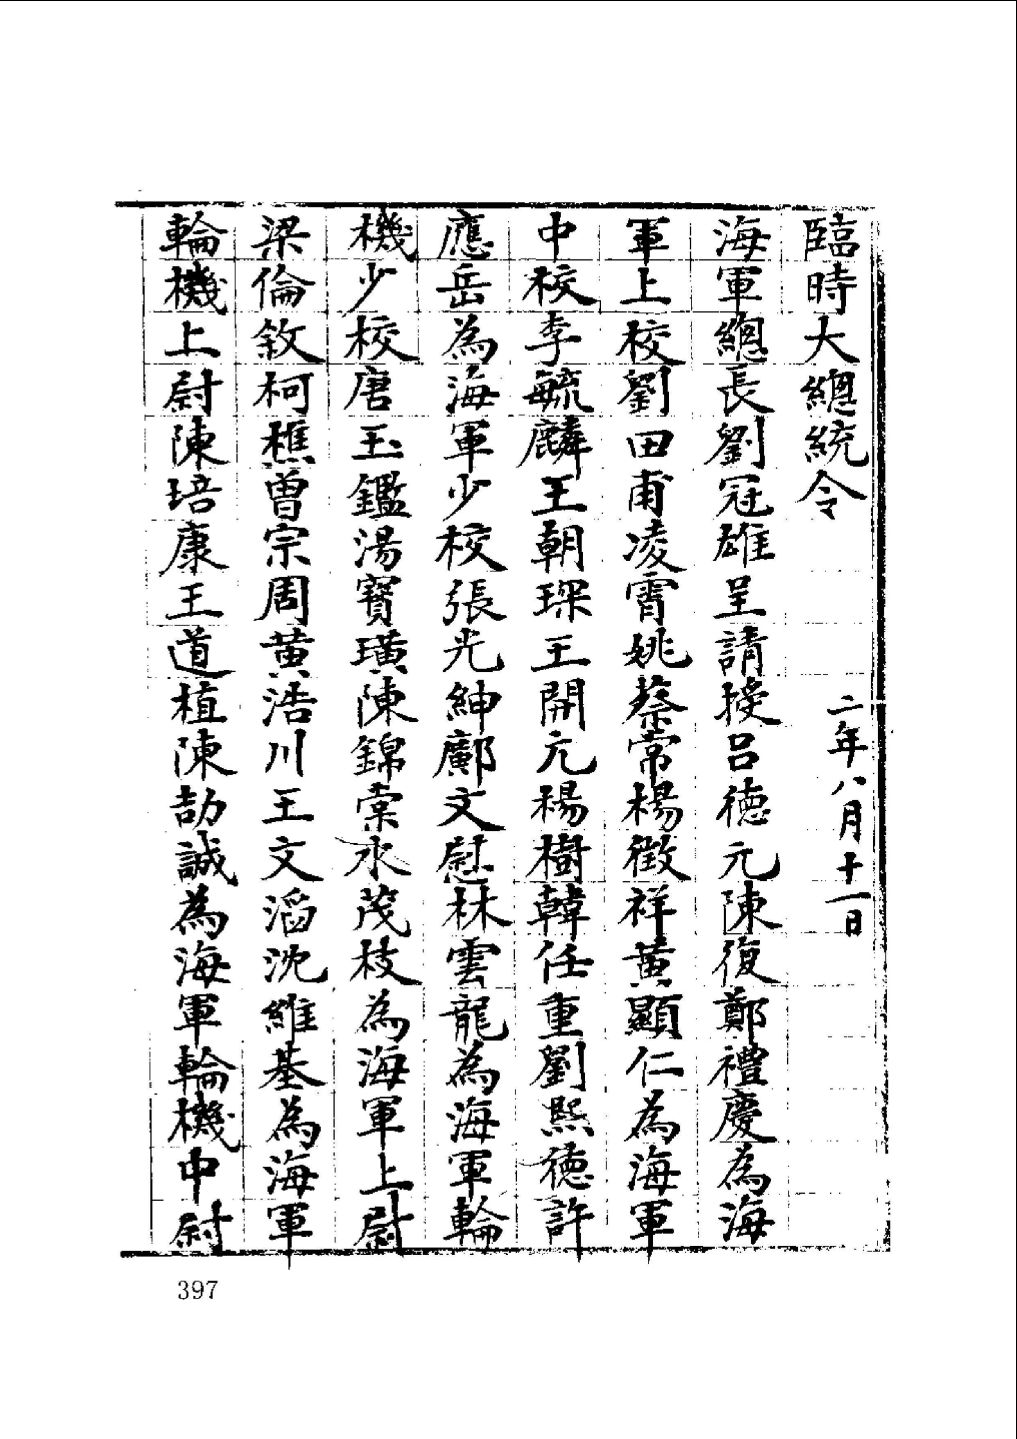 臨時大總統令
二年八月十一日
海軍總長劉冠雄呈請授呂德元陳復鄭禮慶為海
軍上校劉田甫凌霄姚葵常楊徵祥黄顯仁為海軍
中校李毓麟王朝琛王開元楊樹韓任重劉熙德許
應岳為海軍少校張光紳鄺文慰林雲龍為海軍輪
機少校唐玉鑑湯寶璜陳錦棠水茂枝為海軍上尉
梁倫敘柯樵曾宗周黄浩川王文滔沈維基為海軍
輪機上尉陳培康王道植陳劼誠為海軍輪機中尉
397